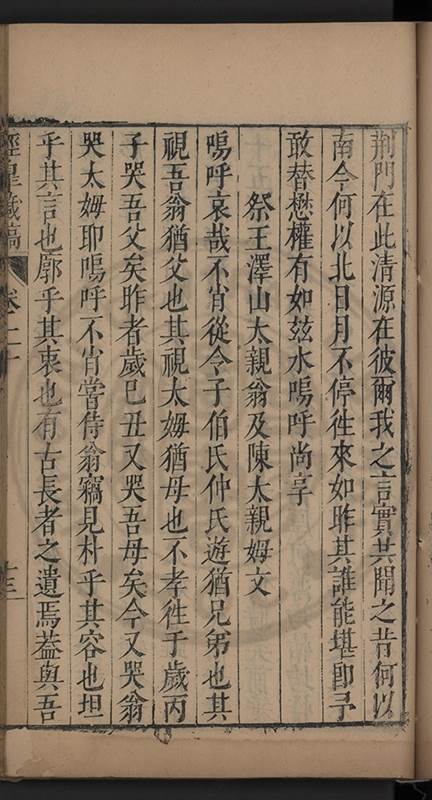 荆門在此清源在彼爾我之言實共聞之昔何以
南今何以北日月不停徃來如昨其誰能堪即予
敢替懋權有如玆水嗚呼尚享
祭王澤山太親翁及陳太親姆文
嗚呼哀哉不肖從令子伯氏仲氏遊猶兄弟也其
視吾翁猶父也其視太姆猶母也不孝徃于歲丙
子哭吾父矣昨者歲巳丑又哭吾母矣今又哭翁
哭太姆耶嗚呼不肖嘗侍翁竊見朴乎其容也坦
乎其言也廓乎其衷也有古長者之遺焉葢與吾
經皐藏稿 卷二十 十三